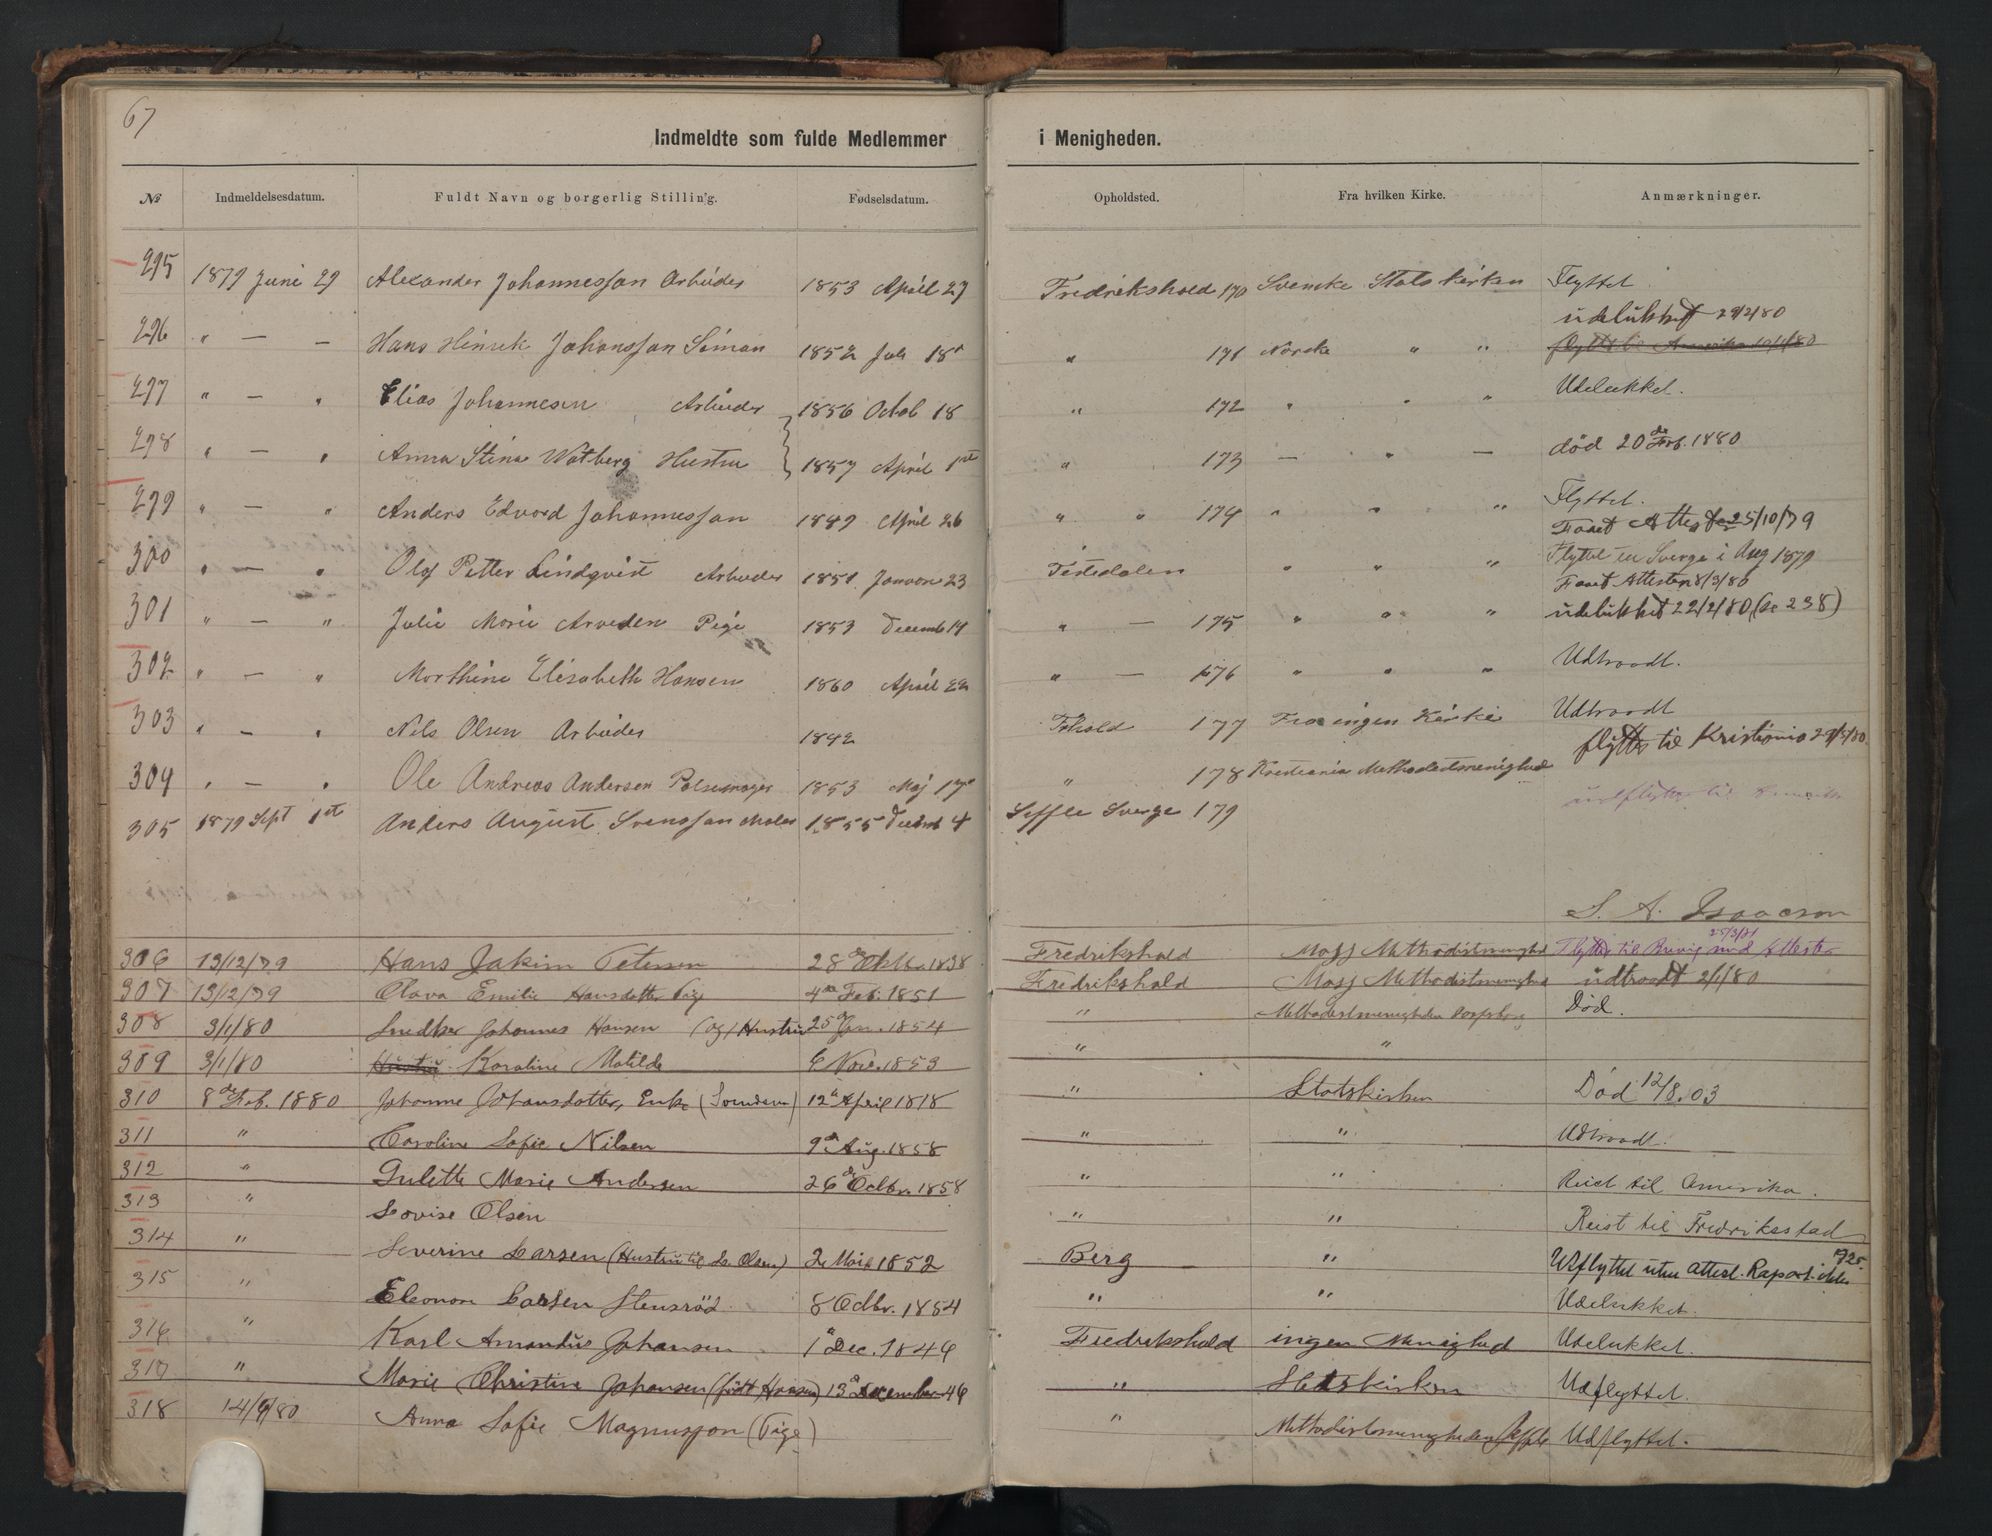 67
Indmeldte som fulde Medlemmer i Menigheden.
№ Indmeldelsesdatum. Fuldt Navn og borgerlig Stilling. Fødselsdatum. Opholdsted. Fra hvilken Kirke. Anmærkninger.
295 1879 Juni 29 Alexander Johannessan Arbeider 1853 April 27 Fredrikshald 170 Svenske Statskirken Flyttet.
udelukket 29/2 80
296 " — — Hans Hinrek Johanssan Siman 1852 Juli 18 " 171 Norske " " flyttet til Amerika 10/4/80
297 " — " Elias Johannesen Arbeider 1856 Octob 18 " 172 " " " Udelukket.
298 " — " Anna Stina Watberg Hustru 1857 April 1st " 173 — " — død 20de Feb. 1880
299 " — " Anders Edvard Johannessan 1849 April 26 " " 174 " " " Flyttet.
Faaet Attest den 25/10/79
300 " — " Olof Petter Lindqvist Arbeider 1851 Januar 23 Tistedalen " " " Flyttet til Sverge i Aug 1879
Faaet Attesten 8/3/80
301 " — " Julie Marie Arvesen Pige 1853 Decemb 14 " — 175 " " " udelukket 22/2/80 (se 238)
302 " — " Marthine Elisabeth Hansen 1860 April 22 " — 176 " " " Udtraadt.
303 " — " Nils Olsen Arbeider 1842 Fshald 177 Fra ingen Kirke Udtraadt
flyttet til Kristiania 29/3/80.
304 " — " Ole Andreas Andersen Pølsemager 1853 Maj 17 " 178 Kristiania Methodistmenighed
udflyttet til
305 1879 Sept 1st Anders August Svenssan Maler 1855 Decemb 4 Seffle Sverge 179
S. A. Isaacson
25/3/81
306 13/12/79 Hans Jakim Petersen 28de Oktb. 1838 Fredrikshald Moss Methodistmenighed Flyttet til Brevig med Attest
307 13/12/79 Olava Emilie Hansdatter Pige 4de Feb. 1851 Fredrikshald Moss Methodistmenighed udtraadt 2/1/80
308 3/1/80 Snedker Johannes Hansen (og) Hustru 25de Jan. 1854 " Methodistmenigheden Sarpsborg Død.
309 3/1/80 Hustru Karoline Matilde 6 Nov. 1853 " "
310 8de Feb. 1880 Johanne Johansdatter, Enke (Svendsen) 12te April 1818 " Statskirken Død 12/8.03
311 " Caroline Sofie Nilsen 9de Aug. 1858 " " Udtraadt.
312 " Gulette Marie Andersen 26de Octbr. 1858 " " Reist til Amerika.
313 " Lovise Olsen " " Reist til Fredriksstad
314 " Severine Larsen (Hustru til L. Olsen) 2 Mai 1852 Berg " Udflyttet uten attest. Raport. 1925.
315 " Eleonore Larsen Stensrød 8 Octbr. 1854 " " Udelukket.
316 " Karl Amandus Johansen 1ste Dec. 1846 Fredrikshald ingen Menighed Udelukket.
317 " Marie Christine Johansen (født Hansen) 13de December 46 " Statskirken Udflyttet.
318 14/6/80 Anna Sofie Magnusson (Pige) " Methodistmenigheden Udflyttet.